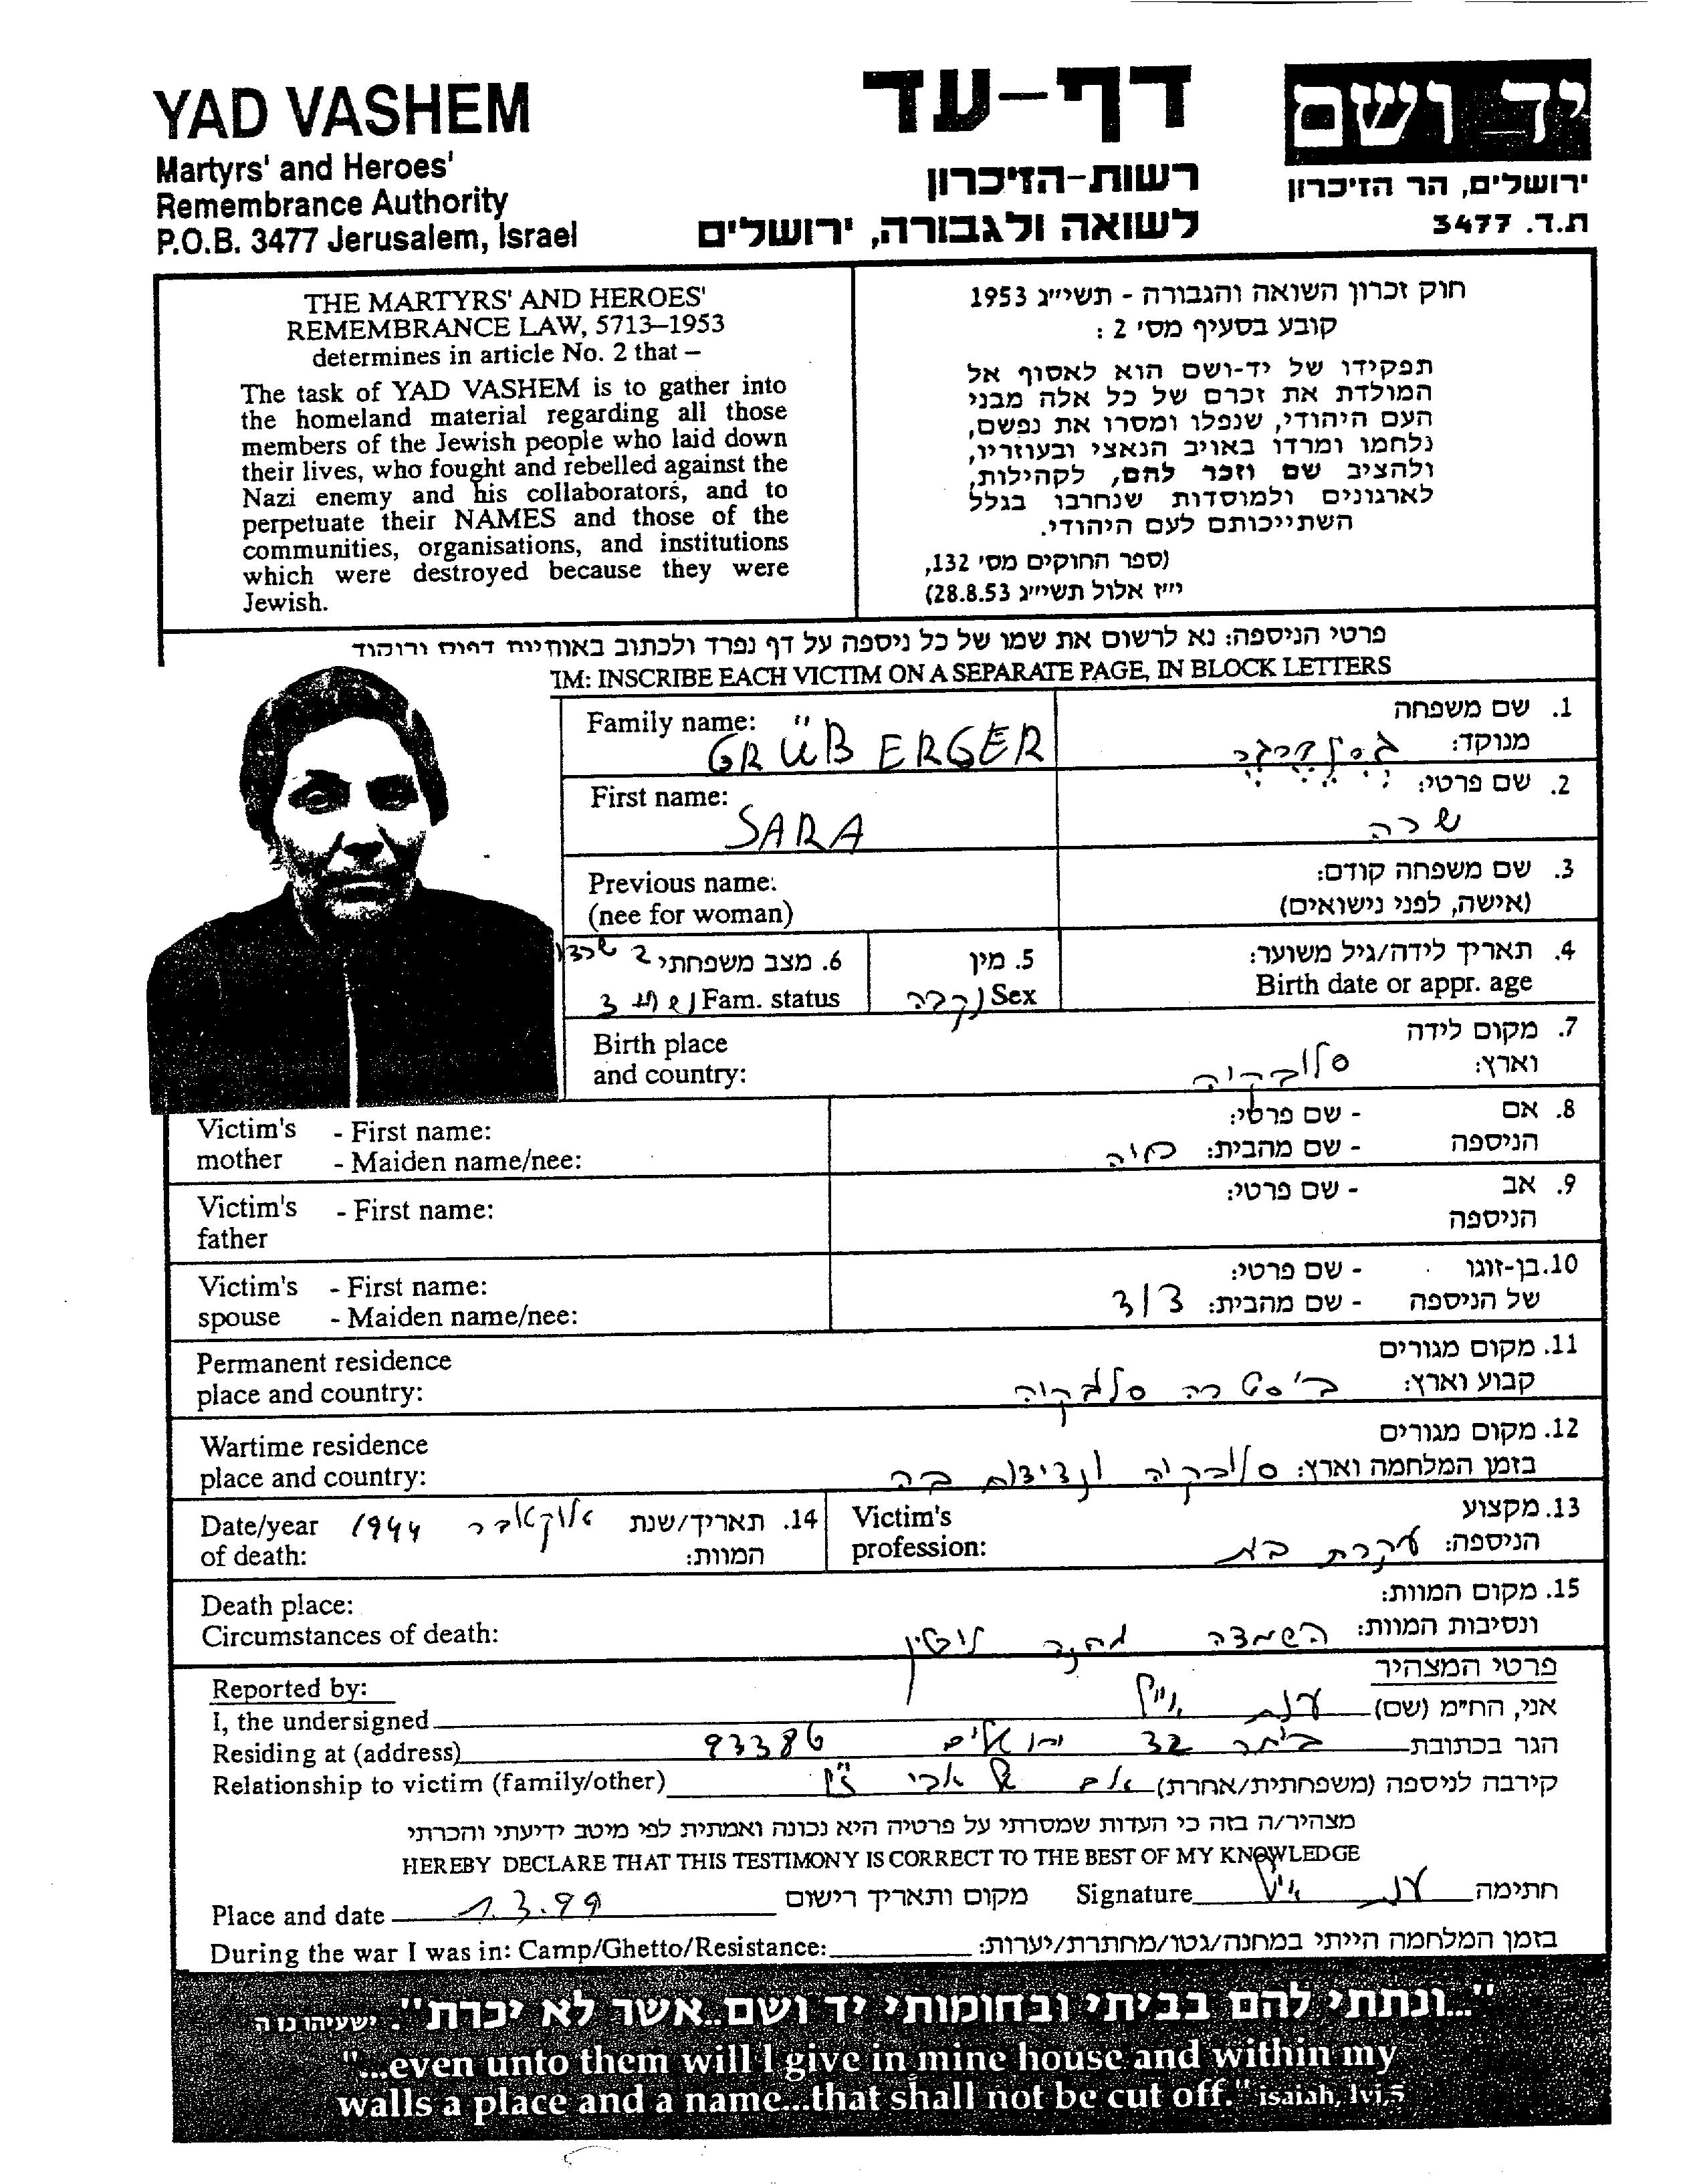 YAD VASHEM
Martyrs' and Heroes'
Remembrance Authority
P.O.B. 3477 Jerusalem, Israel
דף-עד
רשות-הזיכרון
לשואה ולגבורה, ירושלים
יד ושם
ירושלים, הר הזיכרון
ת.ד. 3477
THE MARTYRS' AND HEROES'
REMEMBRANCE LAW, 5713–1953
determines in article No. 2 that –
The task of YAD VASHEM is to gather into
the homeland material regarding all those
members of the Jewish people who laid down
their lives, who fought and rebelled against the
Nazi enemy and his collaborators, and to
perpetuate their NAMES and those of the
communities, organisations, and institutions
which were destroyed because they were
Jewish.
חוק זכרון השואה והגבורה - תשי״ג 1953
קובע בסעיף מס׳ 2 :
תפקידו של יד-ושם הוא לאסוף אל
המולדת את זכרם של כל אלה מבני
העם היהודי, שנפלו ומסרו את נפשם,
נלחמו ומרדו באויב הנאצי ובעוזריו,
ולהציב שם וזכר להם, לקהילות,
לארגונים ולמוסדות שנחרבו בגלל
השתייכותם לעם היהודי.
(ספר החוקים מס׳ 132,
י״ז אלול תשי״ג 28.8.53)
פרטי הניספה: נא לרשום את שמו של כל ניספה על דף נפרד ולכתוב באותיות דפוס וניקוד
IM: INSCRIBE EACH VICTIM ON A SEPARATE PAGE, IN BLOCK LETTERS
Family name: GRÜBERGER
1. שם משפחה
מנוקד:
First name: SARA
2. שם פרטי:
שרה
Previous name:
(nee for woman)
3. שם משפחה קודם:
(אישה, לפני נישואים)
6. מצב משפחתי
Fam. status
5. מין
Sex נקבה
4. תאריך לידה/גיל משוער:
Birth date or appr. age
Birth place
and country:
7. מקום לידה
וארץ: סלובקיה
Victim's - First name:
mother - Maiden name/nee:
8. אם - שם פרטי:
הניספה - שם מהבית: חיה
Victim's - First name:
father
9. אב - שם פרטי:
הניספה
Victim's - First name:
spouse - Maiden name/nee:
10. בן-זוגו - שם פרטי:
של הניספה - שם מהבית: דוד
Permanent residence
place and country:
11. מקום מגורים
קבוע וארץ: ביסטרה סלובקיה
Wartime residence
place and country:
12. מקום מגורים
בזמן המלחמה וארץ: סלובקיה
Date/year
of death:
14. תאריך/שנת אוקטובר 1944
המוות:
Victim's
profession:
13. מקצוע
הניספה: עקרת בית
Death place:
Circumstances of death:
15. מקום המוות:
ונסיבות המוות: השמדה מחנה
Reported by:
פרטי המצהיר
I, the undersigned
אני, הח״מ (שם) ענת
Residing at (address)
הגר בכתובת ביתר 32 ירושלים 93386
Relationship to victim (family/other)
קירבה לניספה (משפחתית/אחרת) אם של אבי ז״ל
מצהיר/ה בזה כי העדות שמסרתי על פרטיה היא נכונה ואמתית לפי מיטב ידיעתי והכרתי
HEREBY DECLARE THAT THIS TESTIMONY IS CORRECT TO THE BEST OF MY KNOWLEDGE
Place and date 1.3.99 מקום ותאריך רישום
Signature ענת חתימה
During the war I was in: Camp/Ghetto/Resistance:
בזמן המלחמה הייתי במחנה/גטו/מחתרת/יערות:
"...ונתתי להם בביתי ובחומותי יד ושם..אשר לא יכרת". ישעיהו נו ה
"...even unto them will I give in mine house and within my
walls a place and a name...that shall not be cut off." isaiah, lvi,5